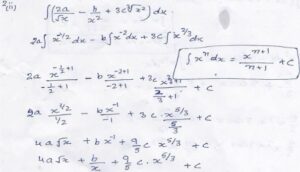 2(ii)
∫(2a/√x - b/x² + 3c ∛x²) dx
2a∫x^{1/2}dx - b∫x^{-2}dx + 3c∫x^{2/3}dx
∫xⁿdx = x^{n+1}/(n+1) + c
2a x^{-1/2+1}/(-1/2+1) - b x^{-2+1}/(-2+1) + 3c x^{2/3+1}/(2/3+1) + c
2a x^{1/2}/(1/2) - b x^{-1}/(-1) + 3c · x^{5/3}/(5/3) + c
4a√x + b x^{-1} + 9/5 c x^{5/3} + c
4a√x + b/x + 9/5 c · x^{5/3} + c